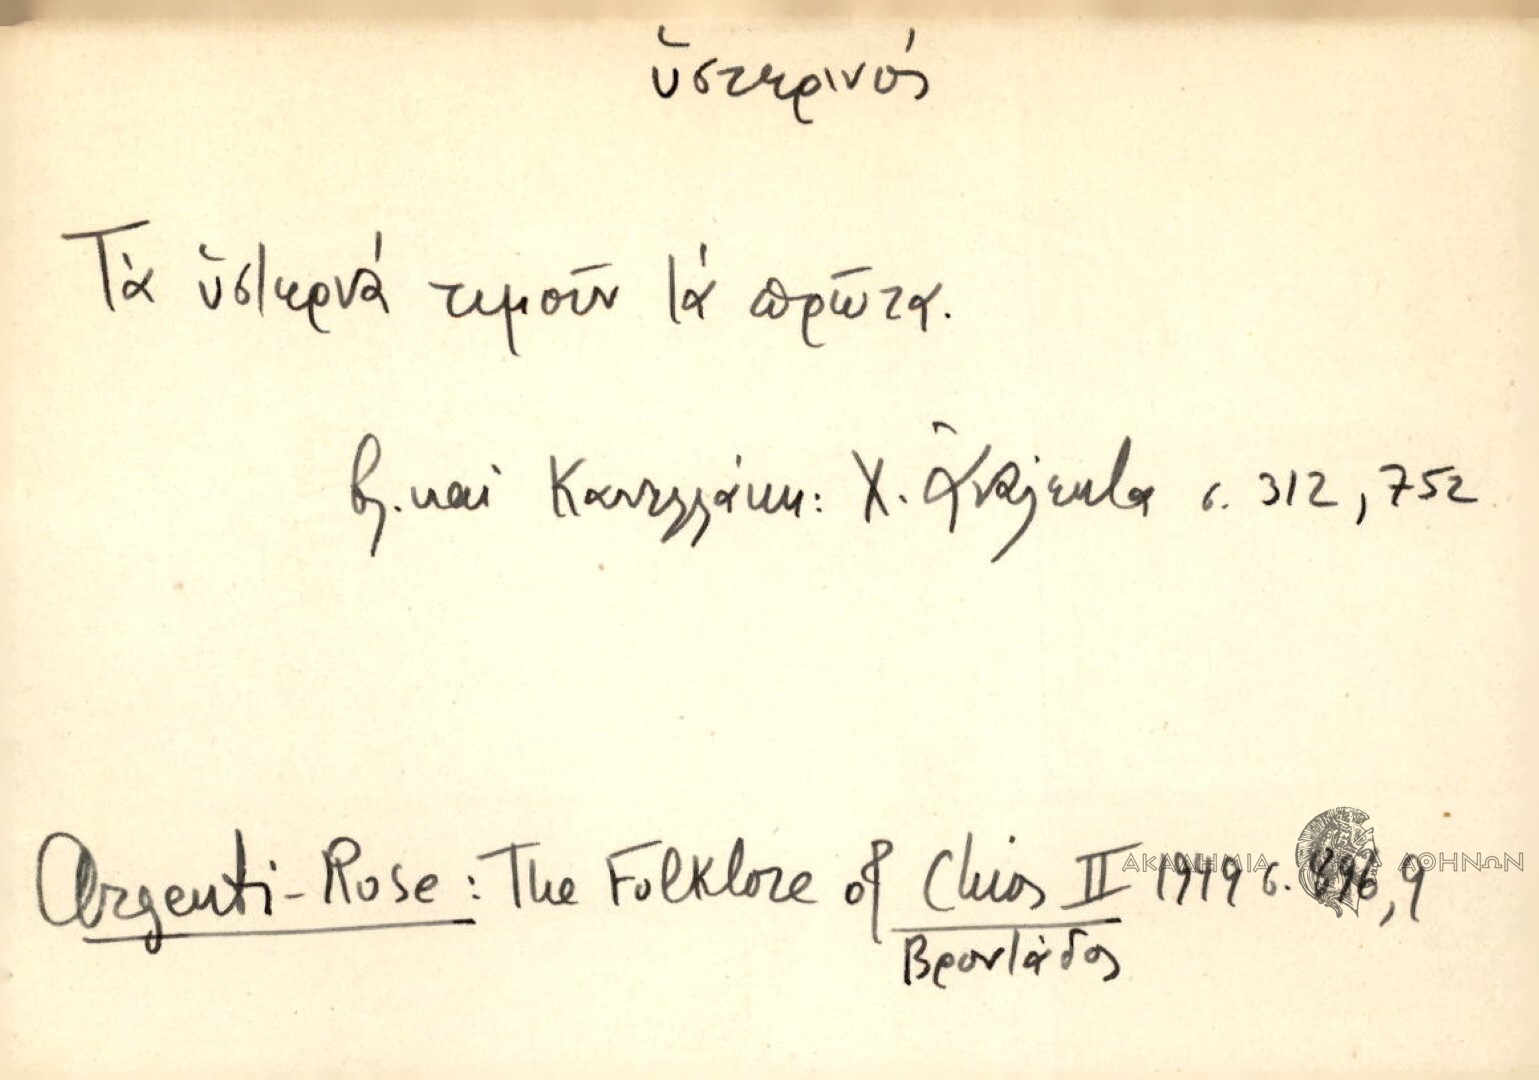 ὑστερινός
Τὰ ὑστερνά τιμοῦν τά πρῶτα.
βλ. καί Κανελλάκη: Χ. Ἀνάλεκτα σ. 312, 752
Argenti-Rose: The Folklore of Chios II 1949 σ. ,9
Βροντάδος
ΑΚΑΔΗΜΙΑ ΑΘΗΝΩΝ